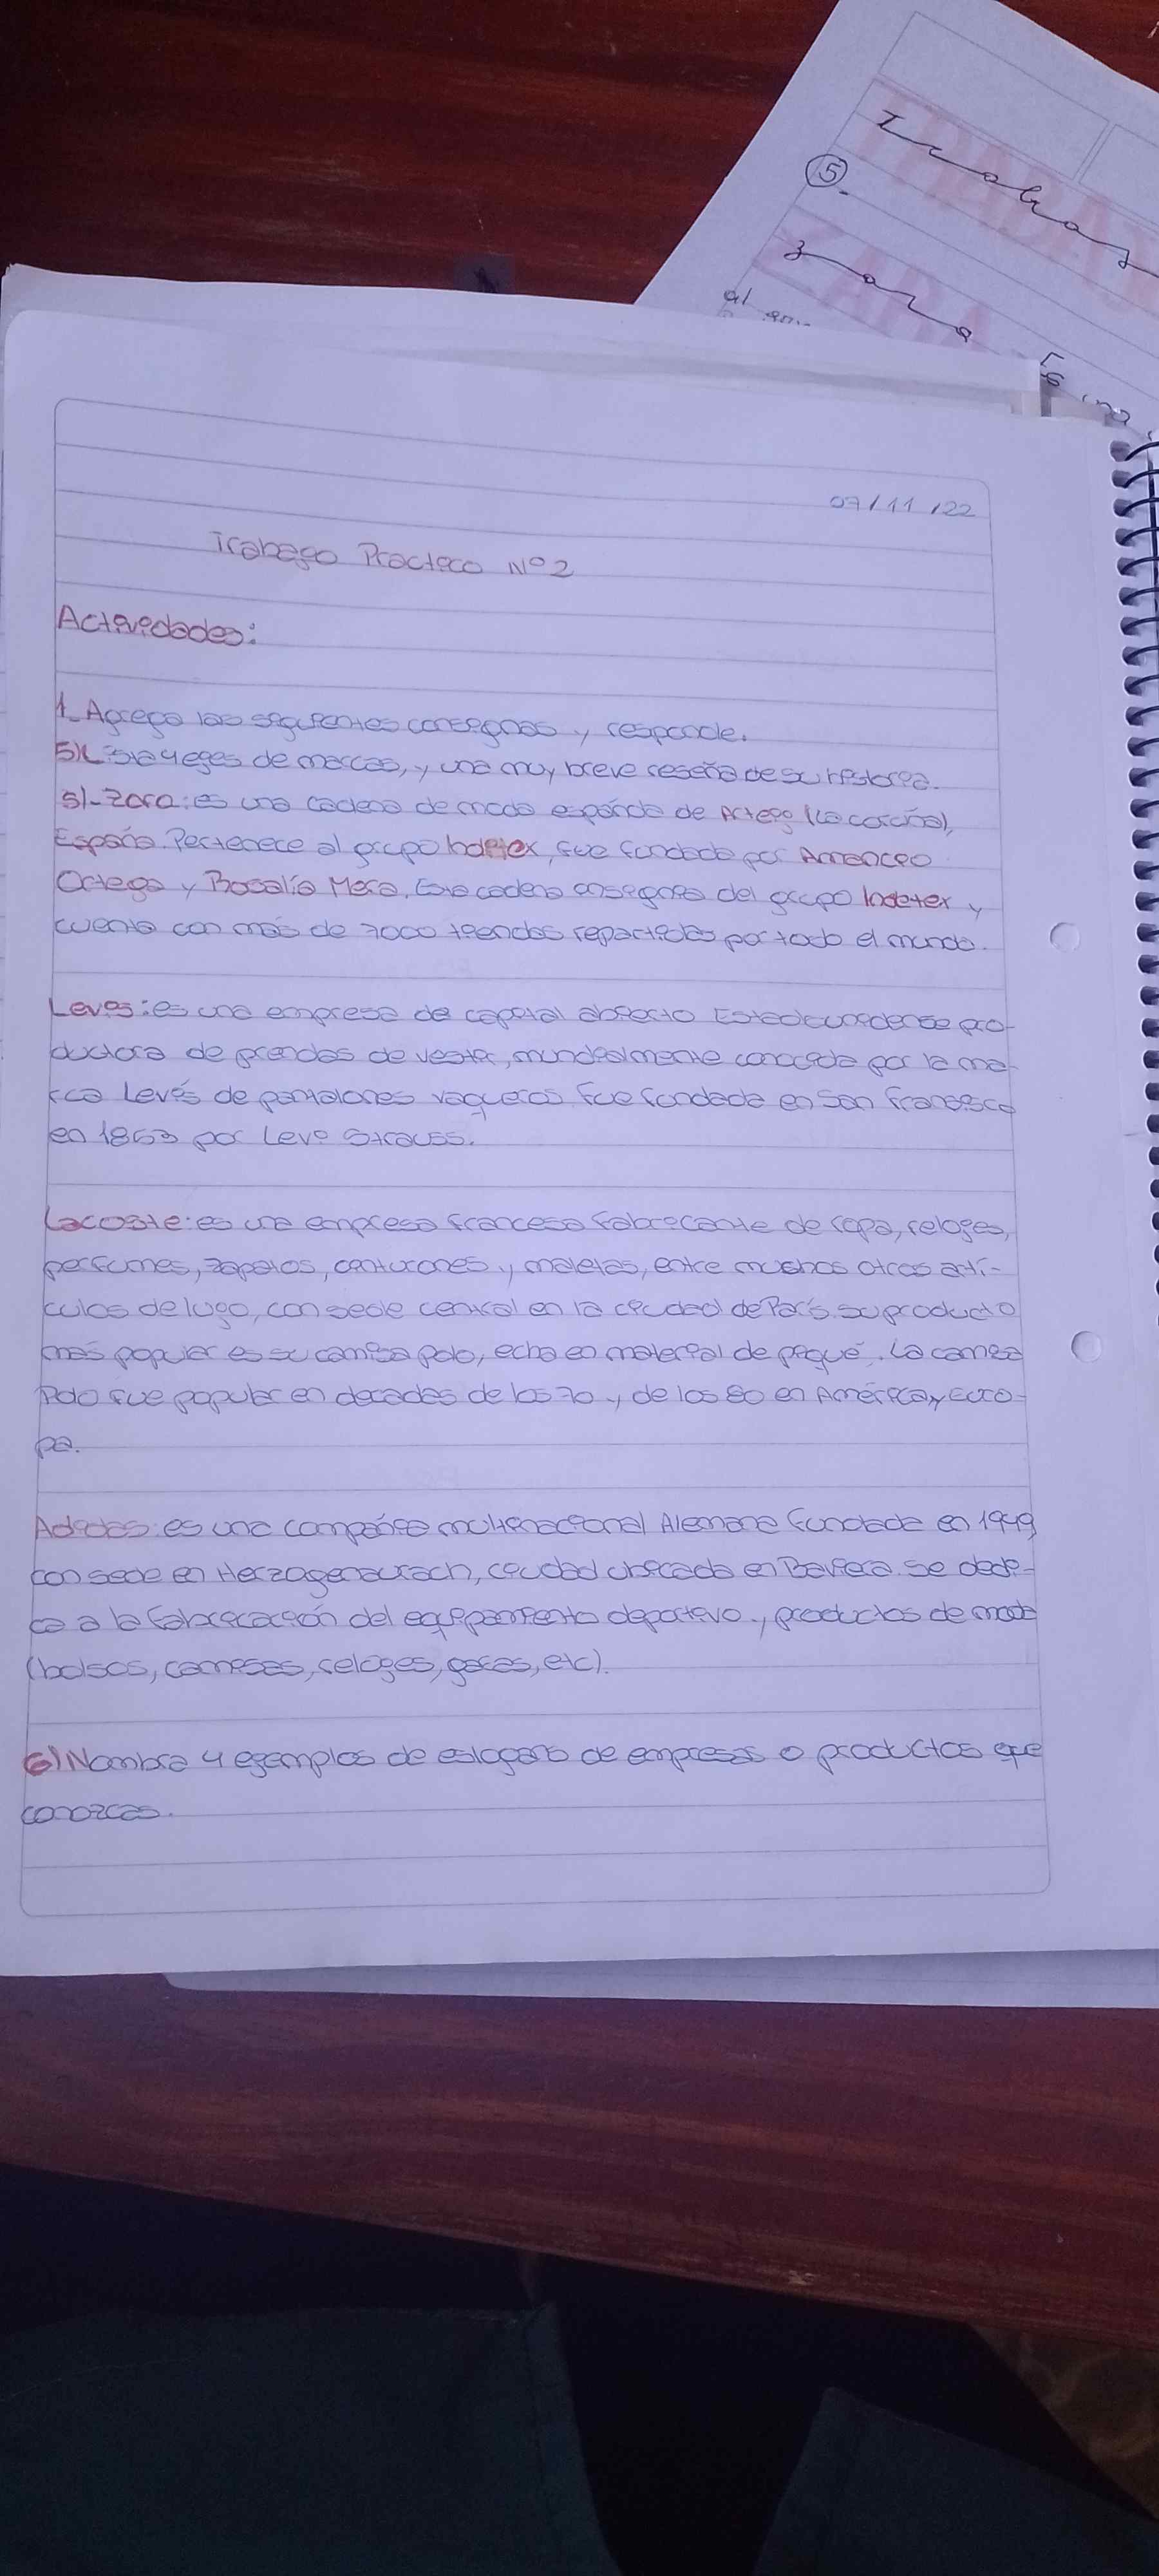 Trabajo
5.
Zara Es una
al
07/11/22
Trabajo Práctico Nº2
Actividades:
1_Agrega las siguientes consignas y responde.
5) Lista 4 ejes de marcas, y una muy breve reseña de su historia.
5)-Zara: es una cadena de moda española de Arteijo (La coruña),
España. Pertenece al grupo Indetex, fue fundada por Amancio
Ortega y Rosalía Mera. Es la cadena ensignea del grupo Indetex y
cuenta con más de 7000 tiendas repartidas por todo el mundo.
Levis: es una empresa de capital abierto Estadounidense pro-
ductora de prendas de vestir, mundialmente conocida por la ma-
rca Levís de pantalones vaqueros. Fue fundada en San Fransisco
en 1853 por Levi Strauss.
Lacoste: es una empresa francesa fabricante de ropa, relojes,
perfumes, zapatos, cinturones y maletas, entre muchos otros artí-
culos de lujo, con sede central en la ciudad de París. su producto
más popular es su camisa polo, echa en material de piqué. La camisa
Polo fue popular en decadas de los 70 y de los 80 en América y Euro-
pa.
Adidas: es una compañia multinacional Alemana fundada en 1949,
con sede en Herzogenaurach, ciudad ubicada en Baviera. Se dedi-
ca a la fabricación del equipamiento deportivo y productos de moda
(bolsos, camisas, relojes, gafas, etc).
6) Nombra 4 ejemplos de eslogans de empresas o productos que
conozcas.